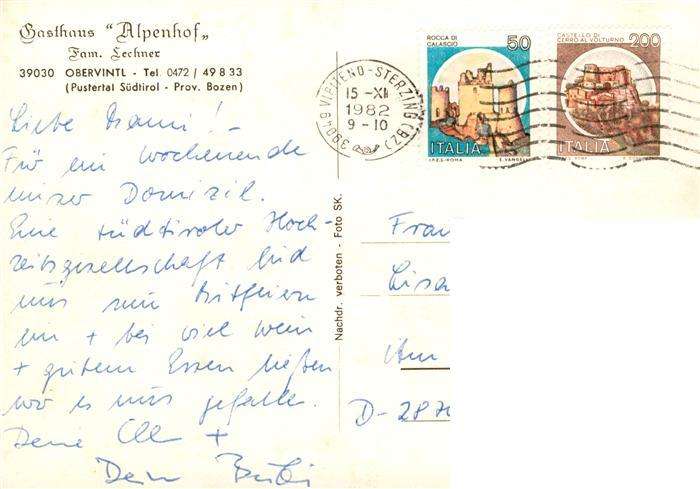 Gasthaus "Alpenhof"
Fam. Lechner
39030 OBERVINTL - Tel. 0472 / 49 8 33
(Pustertal Südtirol - Prov. Bozen)
ROCCA DI
CALASCIO
50
ITALIA
I.P.Z.S.-ROMA E. VANGELLI
CASTELLO DI
CERRO AL VOLTURNO
200
ITALIA
39049 VIPITENO-STERZING (BZ)
15-XI
1982
9-10
Liebe Mami! -
Für ein Wochenende
unser Domizil.
Eine südtiroler Hoch-
zeitsgesellschaft lud
uns zum Mitfeiern
ein + bei viel Wein
+ gutem Essen ließen
wir es uns gefallen.
Deine +
Dein
Nachdr. verboten - Foto SK.
Frau
Lisa
Am
D-287